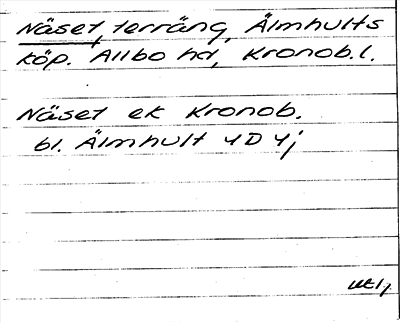 Näset, terräng, Älmhults
köp. Allbo hd, Kronob. l.
Näset ek Kronob.
bl. Älmhult 4D 4j